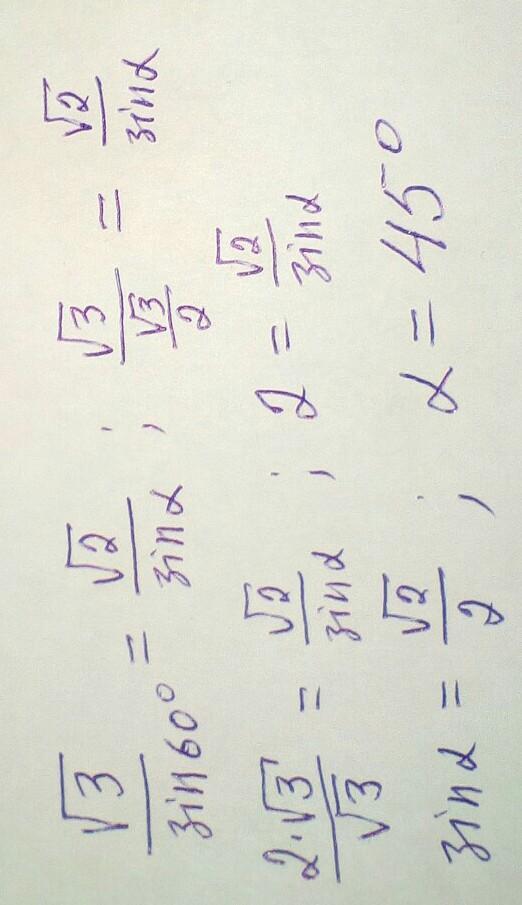 √3/sin60° = √2/sinα ; √3/(√3/2) = √2/sinα
2·√3/√3 = √2/sinα ; 2 = √2/sinα
sinα = √2/2 ; α = 45°